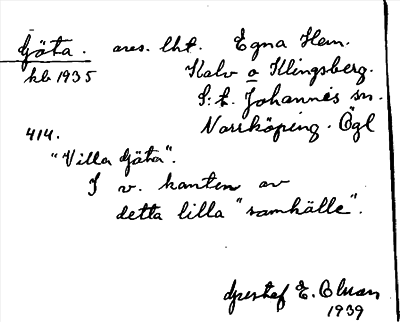 Göta. avs. lht. Egna Hem.
kb 1935 Kalv o Klingsberg.
S:t Johannes sn.
Norrköping. Ögl
414.
"Villa Göta".
I v. kanten av
detta lilla "samhälle".
Gustaf E. Olsson
1939